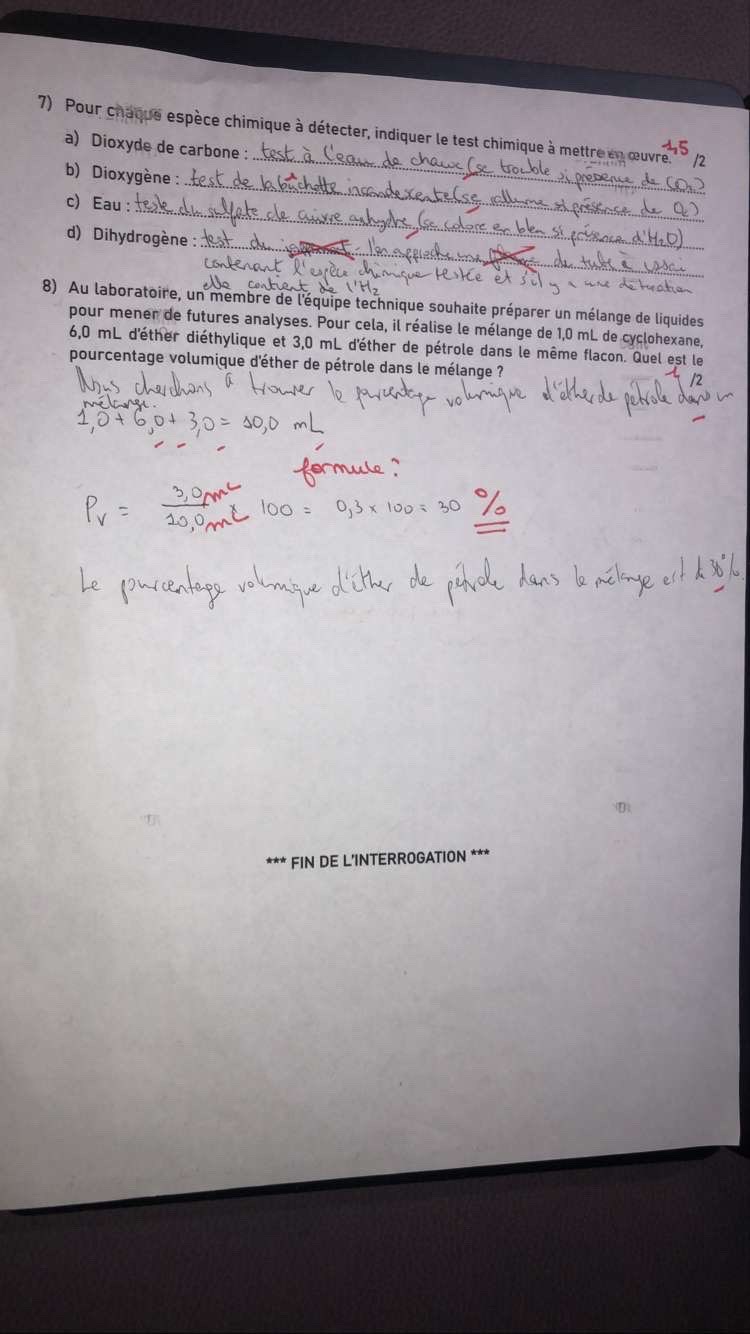 7) Pour chaque espèce chimique à détecter, indiquer le test chimique à mettre en œuvre. 1,5 /2
a) Dioxyde de carbone : test à l'eau de chaux (se trouble si présence de CO2)
b) Dioxygène : test de la bûchette incandescente (se rallume si présence de O2)
c) Eau : teste du sulfate de cuivre anhydre (se colore en bleu si présence d'H2O)
d) Dihydrogène : test du l'on approche une du tube à essai
contenant l'espèce chimique testée et s'il y a une détonation
elle contient de l'H2
8) Au laboratoire, un membre de l'équipe technique souhaite préparer un mélange de liquides
pour mener de futures analyses. Pour cela, il réalise le mélange de 1,0 mL de cyclohexane,
6,0 mL d'éther diéthylique et 3,0 mL d'éther de pétrole dans le même flacon. Quel est le
pourcentage volumique d'éther de pétrole dans le mélange ?
1 /2
Nous cherchons à trouver le pourcentage volumique d'éther de pétrole dans un
mélange.
1,0 + 6,0 + 3,0 = 10,0 mL
formule ?
Pv = 3,0 mL / 10,0 mL × 100 = 0,3 × 100 = 30 %
Le pourcentage volumique d'éther de pétrole dans le mélange est de 30%.
*** FIN DE L'INTERROGATION ***